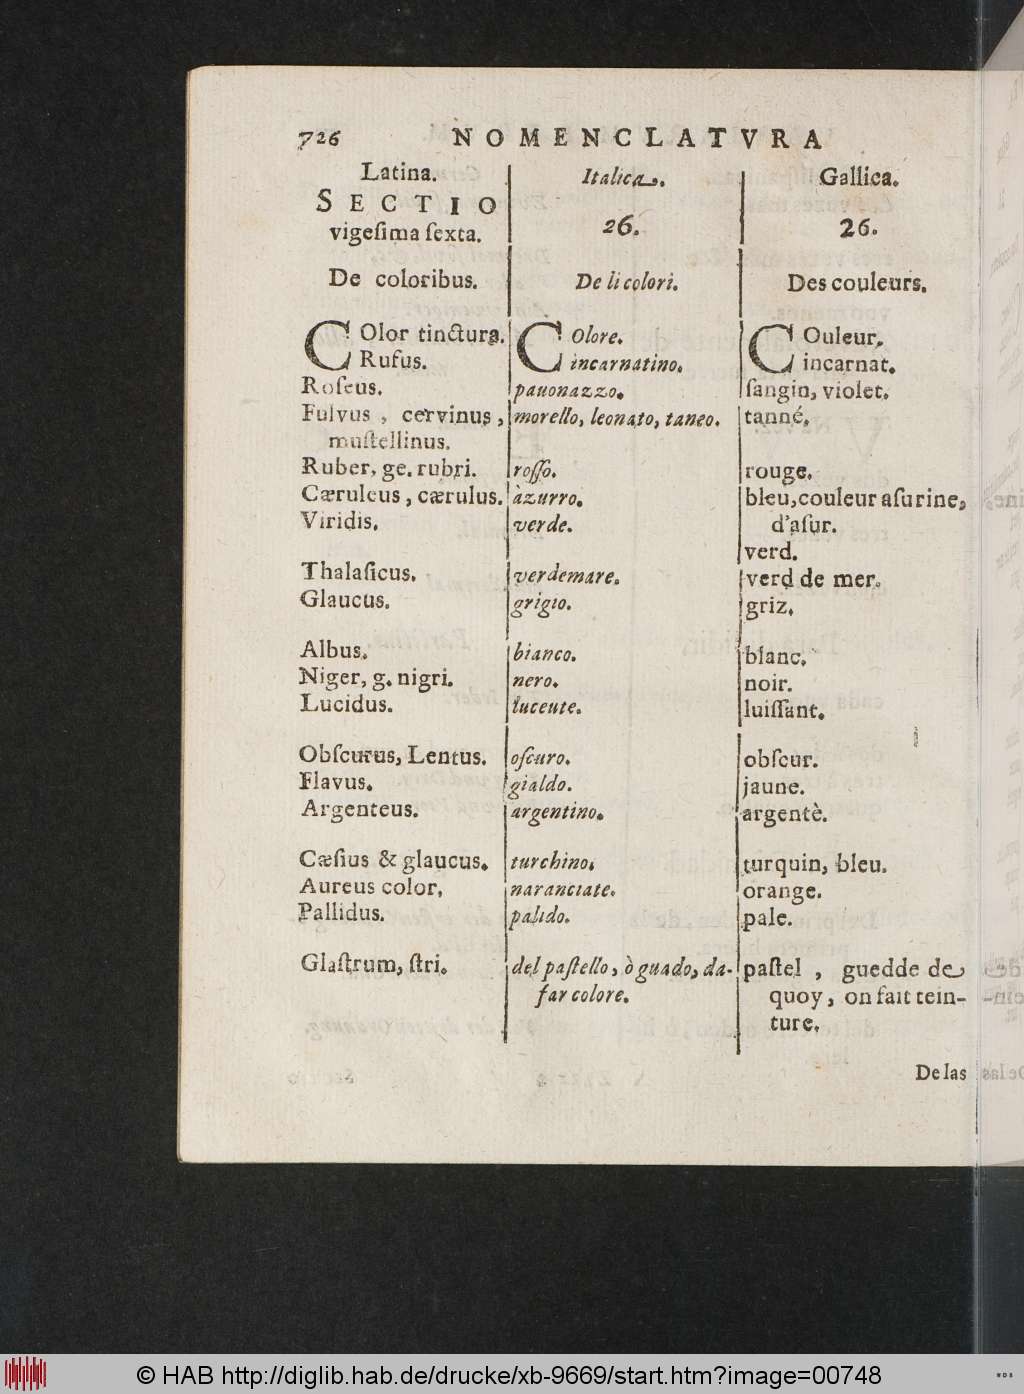 726 NOMENCLATVRA
Latina.
SECTIO
vigeſima ſexta.
De coloribus.
COlor tinctura.
Rufus.
Roſeus.
Fulvus , cervinus ,
muſtellinus.
Ruber, ge. rubri.
Cæruleus , cærulus.
Viridis.
Thalaſicus.
Glaucus.
Albus.
Niger, g. nigri.
Lucidus.
Obſcurus, Lentus.
Flavus.
Argenteus.
Cæſius & glaucus.
Aureus color,
Pallidus.
Glaſtrum, ſtri.
Italica.
26.
De li colori.
COlore.
incarnatino.
pauonazzo.
morello, leonato, taneo.
roſſo.
àzurro.
verde.
verdemare.
grigio.
bianco.
nero.
luceute.
oſcuro.
gialdo.
argentino.
turchino.
naranciate.
palido.
del paſtello, ò guado, da-
far colore.
Gallica.
26.
Des couleurs.
COuleur.
incarnat.
ſangin, violet.
tanné.
rouge.
bleu, couleur aſurine,
d'aſur.
verd.
verd de mer.
griz.
blanc.
noir.
luiſſant.
obſcur.
jaune.
argentè.
turquin, bleu.
orange.
pale.
paſtel , guedde de
quoy, on fait tein-
ture.
De las
© HAB http://diglib.hab.de/drucke/xb-9669/start.htm?image=00748